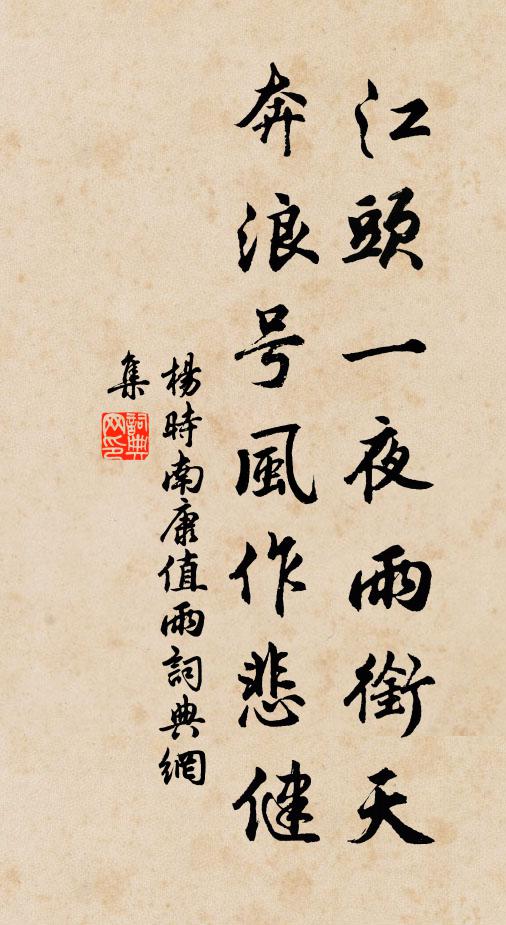 江頭一夜雨銜天
奔浪号風作悲健
楊時南康值雨詞典網
集
詞典
网印